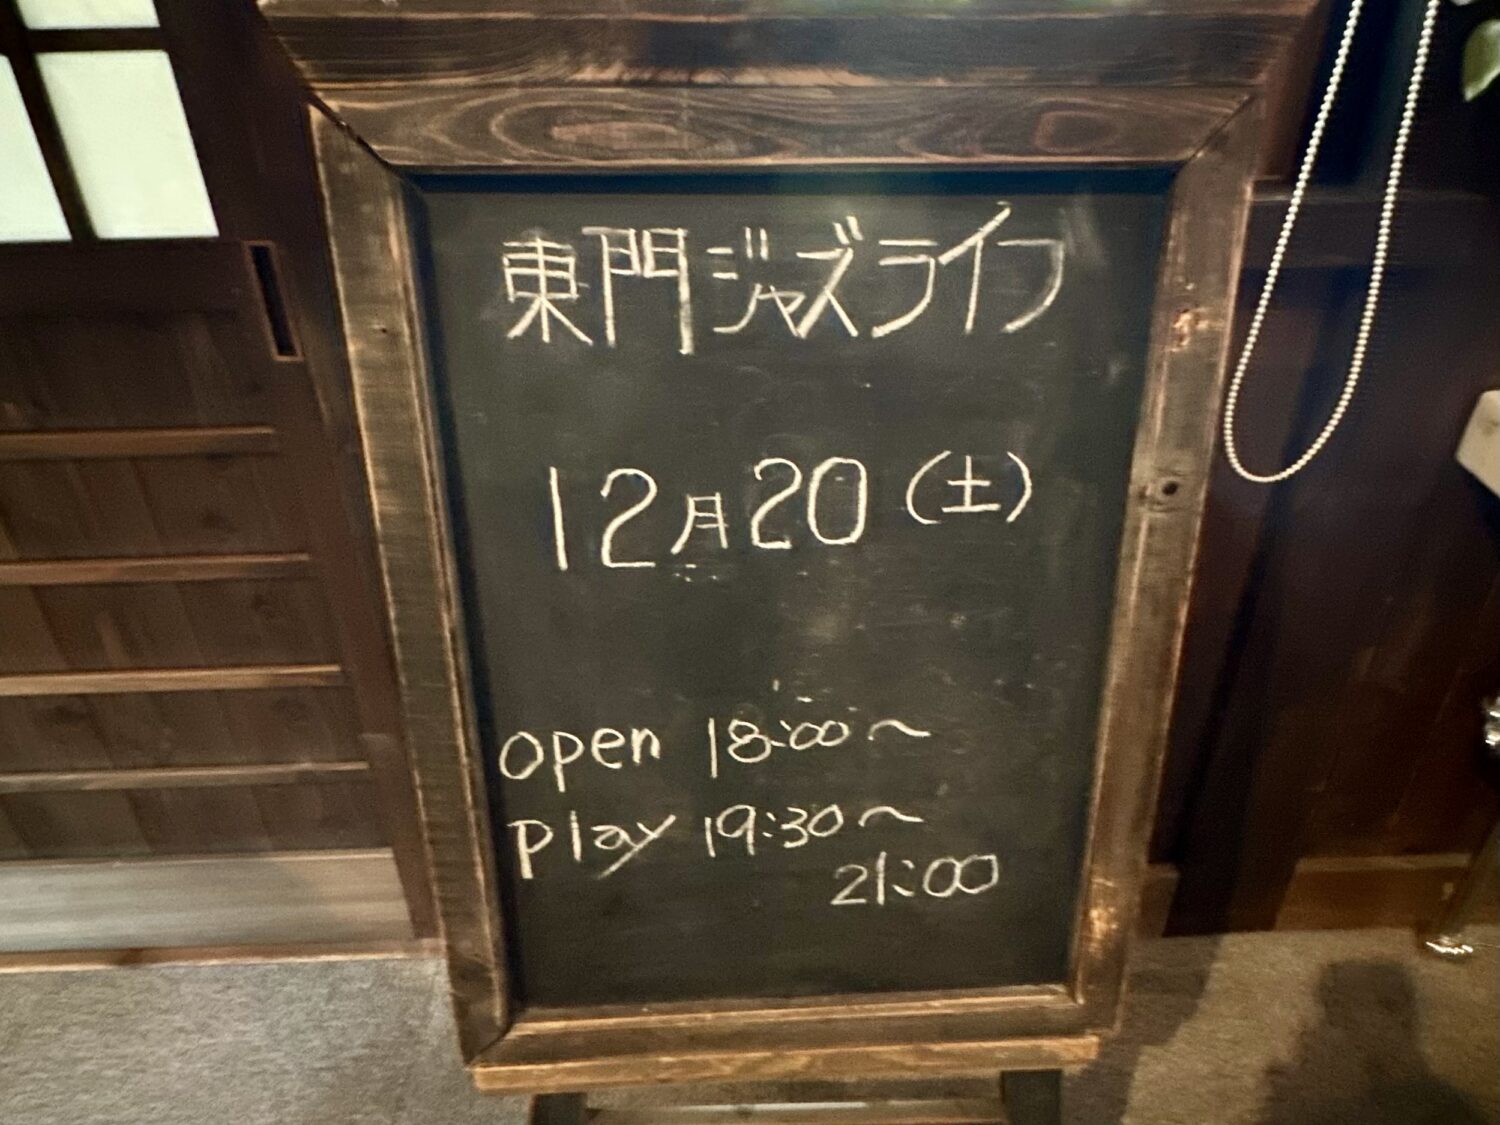 東門ジャズライブ
12月20(土)
open 18:00〜
play 19:30〜
21:00